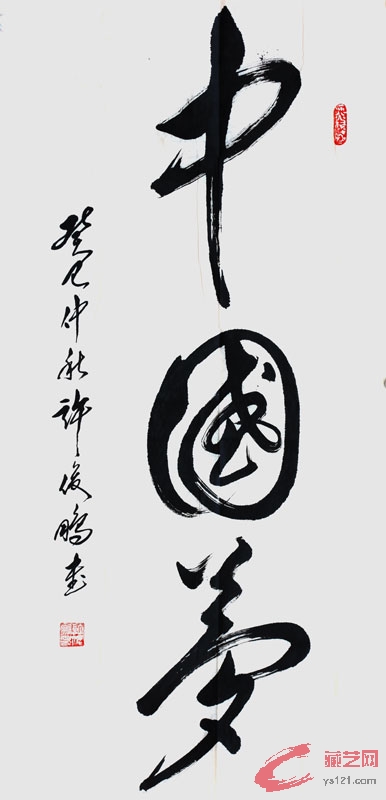 中國夢
癸巳仲秋許俊鵬書
藏艺网
ys121.com